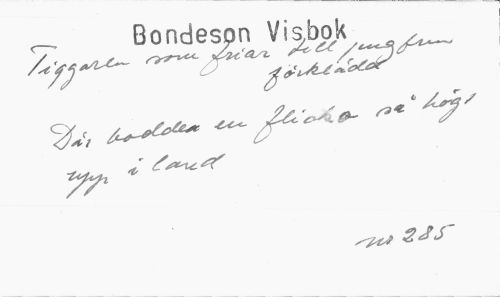 Bondeson Visbok
Tiggaren som friar till jungfrun
förklädd
Där bodde en flicka så högt
upp i land
nr 285